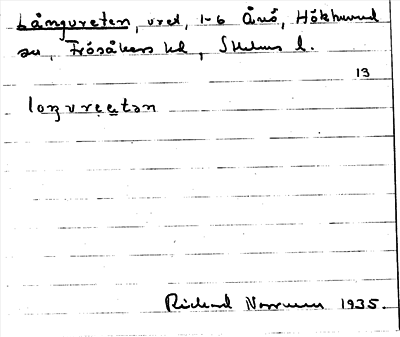 Långvreten, vret, 1-6 Ånö, Hökhuvud
sn, Frösåkers hd, Sthlms l.
13
loŋvre̤tən
Rickard Norrman 1935.